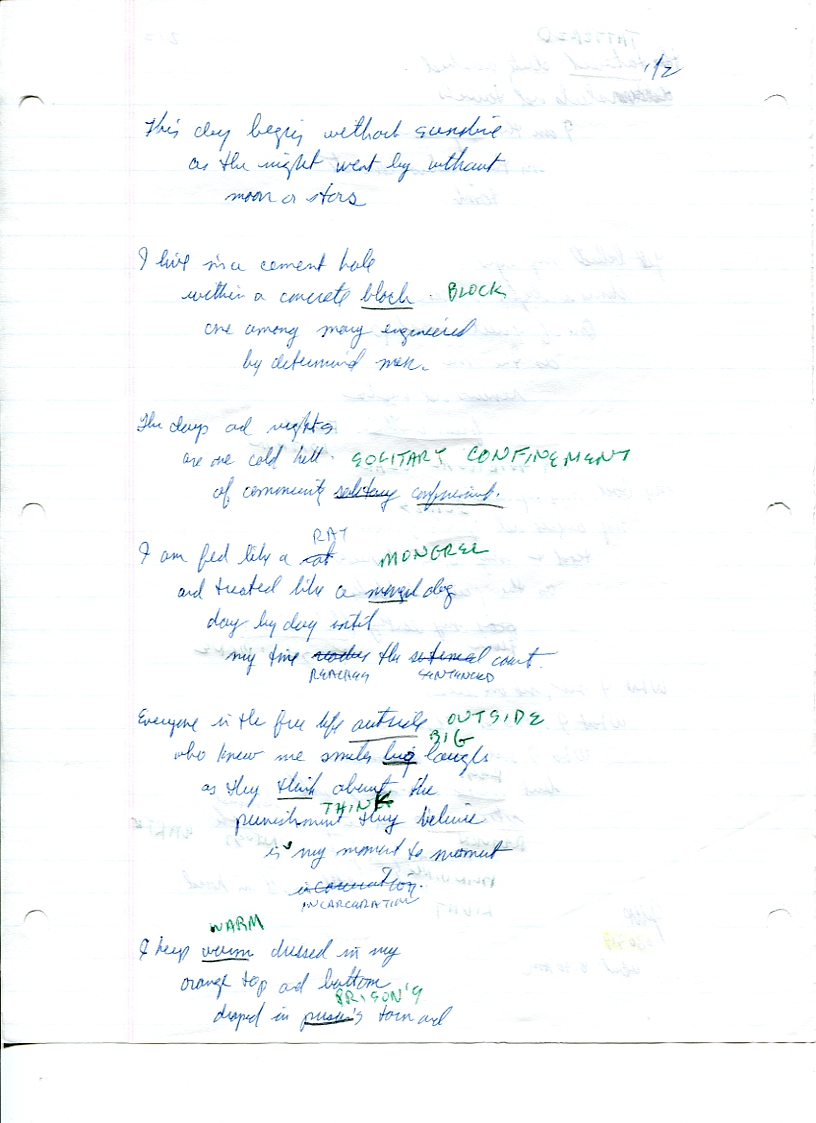 1/2
This day begins without sunshine
as the night went by without
moon or stars
I live in a cement hole
within a concrete block. BLOCK
one among many engineered
by determined men.
The days ad nights
are one cold hell. SOLITARY CONFINEMENT
of community solitary confinement.
RAT
I am fed like a rat MONGREL
and treated like a mongrel dog
day by day until
my time reaches the sentenced court.
REACHES SENTENCED
Everyone in the free life outside OUTSIDE
BIG
who knew me smiles big laughs
as they think about the
THINK
punishment they believe
is my moment to moment
incarceration.
INCARCERATION
WARM
I keep warm dressed in my
orange top ad bottom
PRISON'S
draped in prison's torn ad